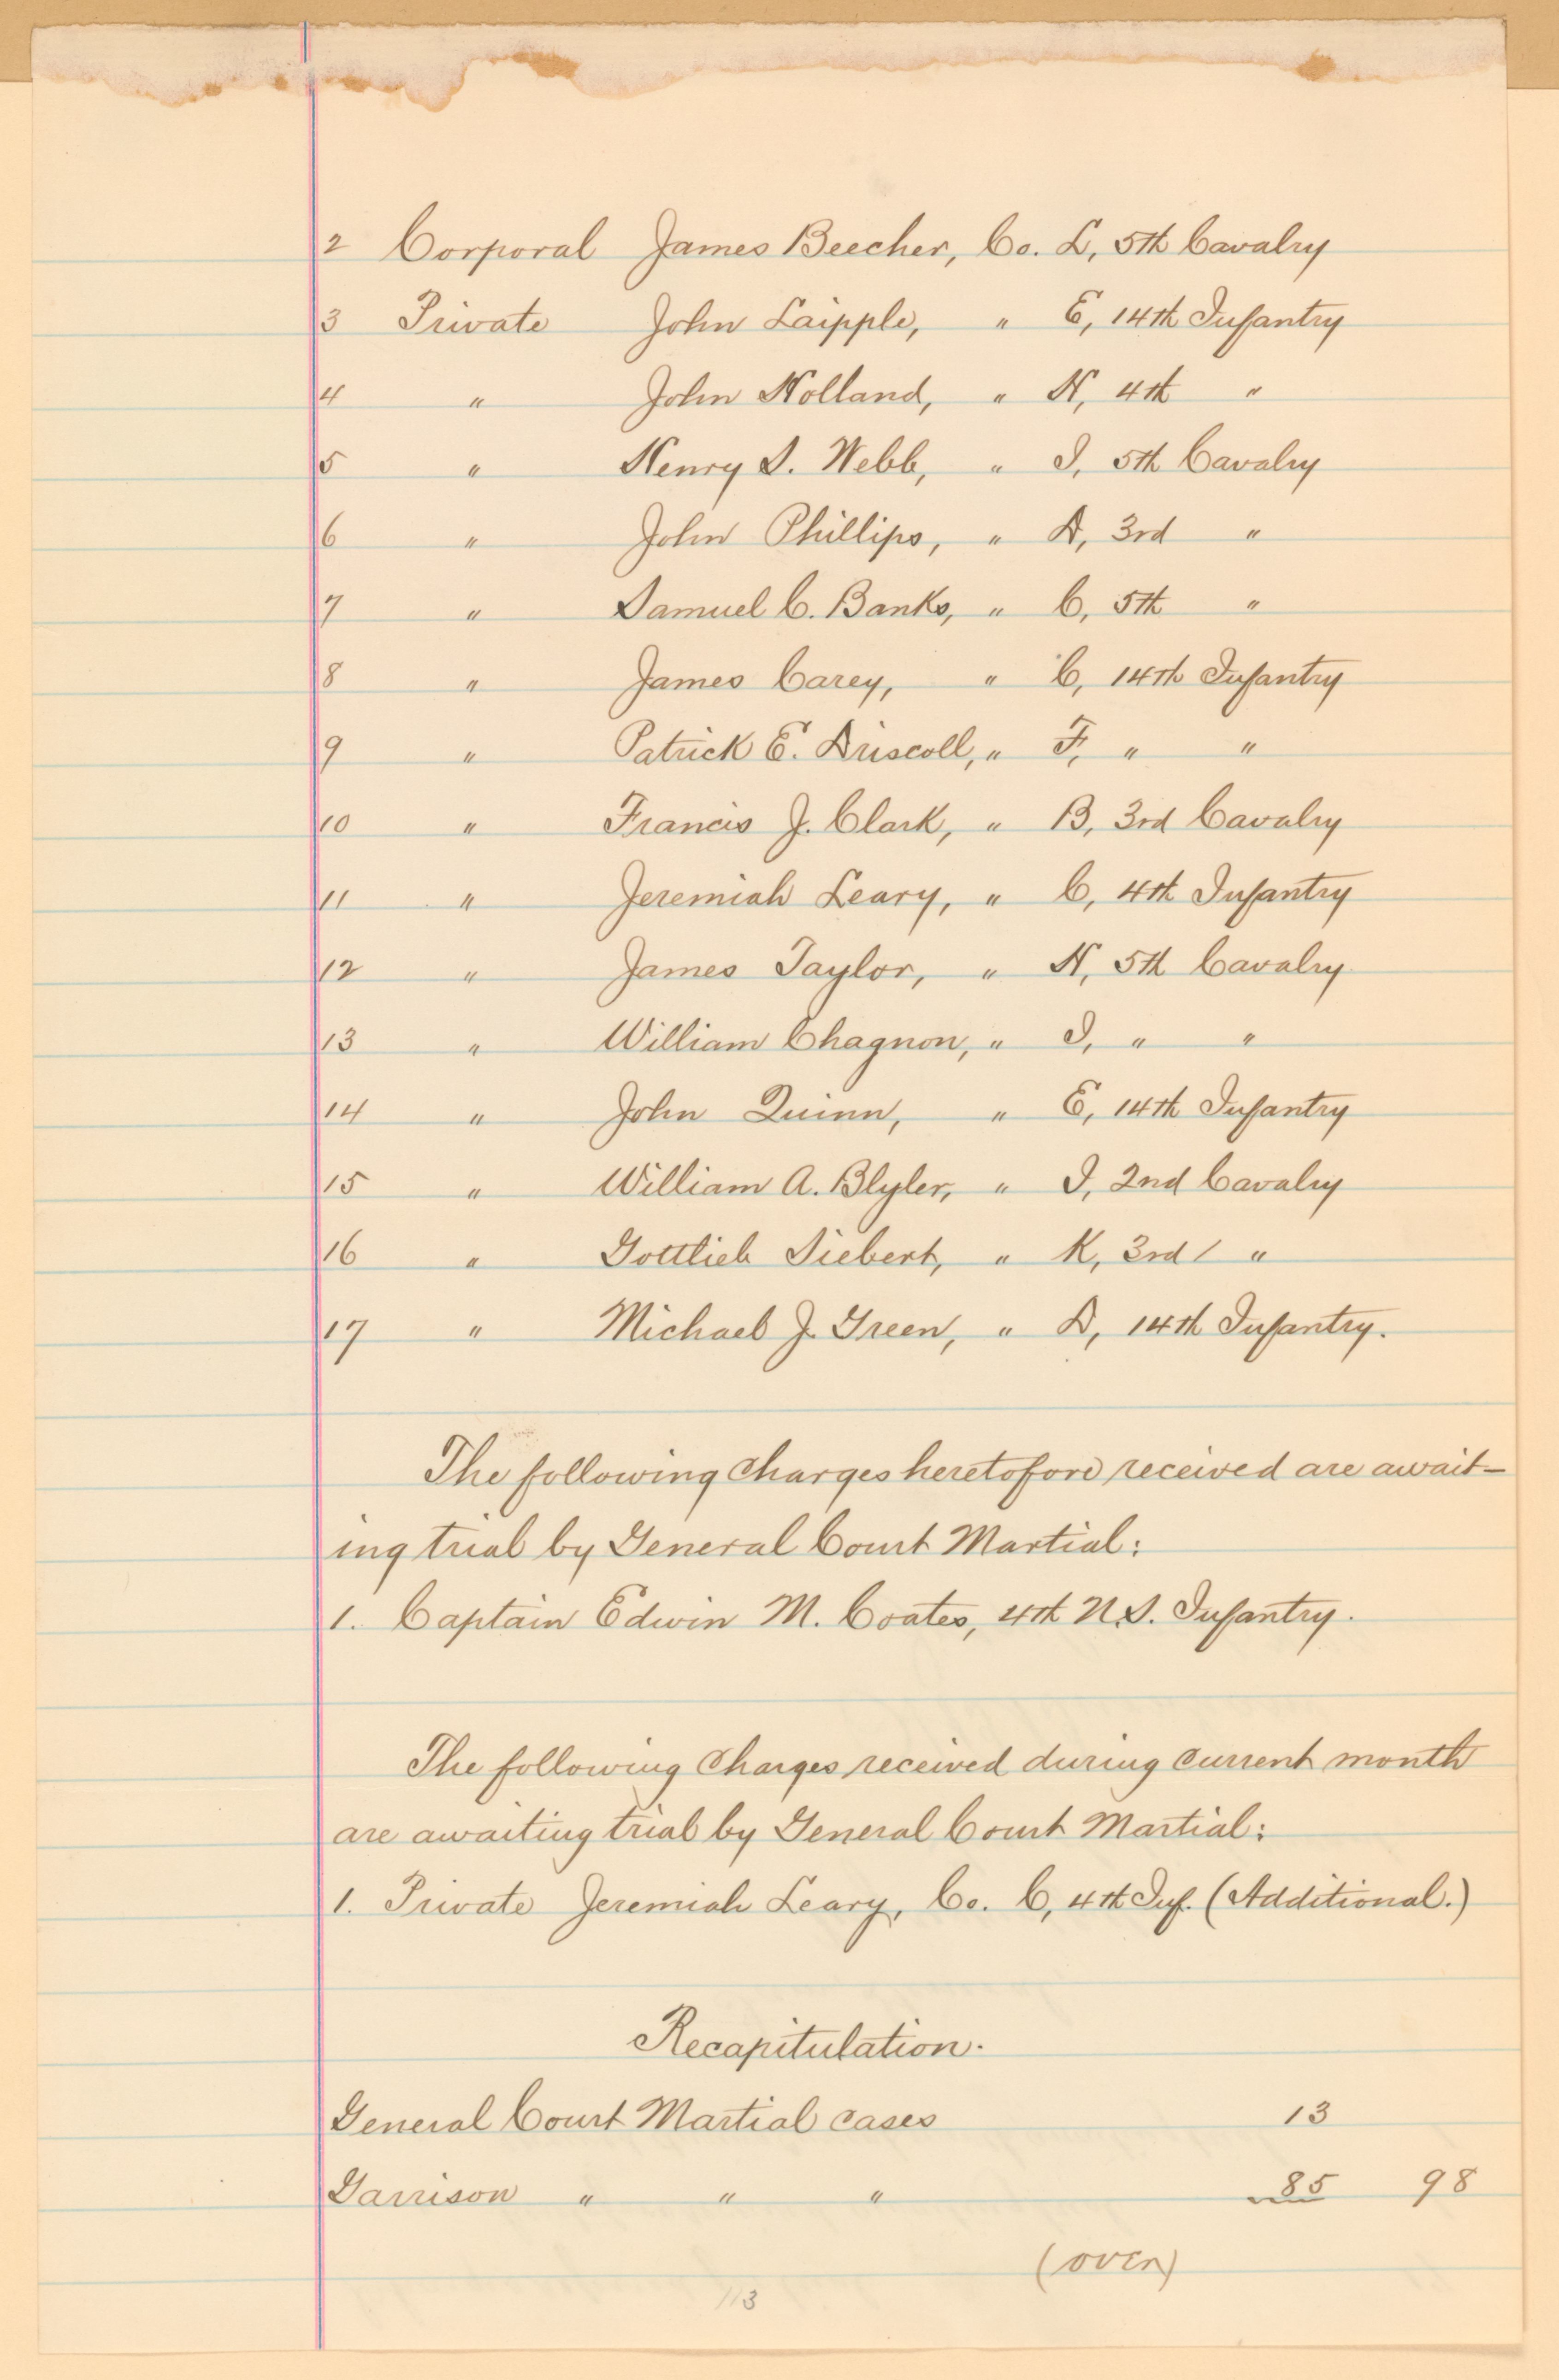 2 Corporal James Beecher, Co. L, 5th Cavalry
3 Private John Laipple, " E, 14th Infantry
4 " John Holland, " H, 4th "
5 " Henry S. Webb, " I, 5th Cavalry
6 " John Phillips, " D, 3rd "
7 " Samuel C. Banks, " C, 5th "
8 " James Carey, " C, 14th Infantry
9 " Patrick E. Driscoll, " F, " "
10 " Francis J. Clark, " B, 3rd Cavalry
11 " Jeremiah Leary, " C, 4th Infantry
12 " James Taylor, " H, 5th Cavalry
13 " William Chagnon, " I, " "
14 " John Quinn, " E, 14th Infantry
15 " William A. Blyler, " I, 2nd Cavalry
16 " Gottlieb Siebert, " K, 3rd "
17 " Michael J. Green, " D, 14th Infantry.
The following Charges heretofore received are await-
ing trial by General Court Martial:
1. Captain Edwin M. Coates, 4th U.S. Infantry.
The following Charges received during current month
are awaiting trial by General Court Martial:
1. Private Jeremiah Leary, Co. C, 4th Inf. (Additional.)
Recapitulation.
General Court Martial cases 13
Garrison " " " 85 98
(over)
113